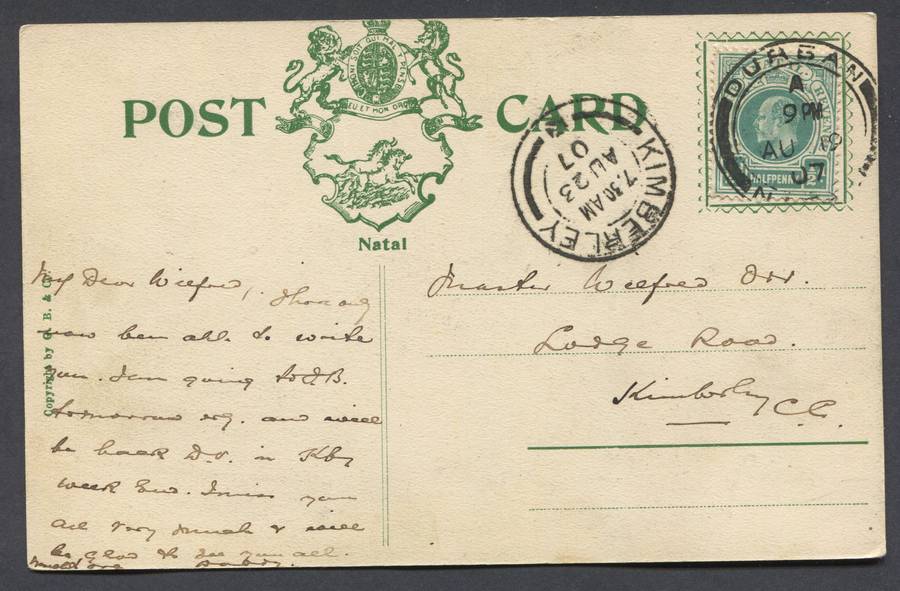 POST CARD
HONI SOIT QUI MAL Y PENSE
DIEU ET MON DROIT
Natal
REVENUE
HALFPENNY
DURBAN
A
9 PM
AU 19
07
N
KIMBERLEY
7.30 AM
AU 23
07
Copyright by G. B. & Co
My Dear Wilfred,
now been able to write
you. I am going to J.B.
tomorrow evg. and will
be back D.V. in Kby
week End. I miss you
all very much & will
be glad to see you all.
Daddy.
Master Wilfred Orr.
Lodge Road.
Kimberley C.C.